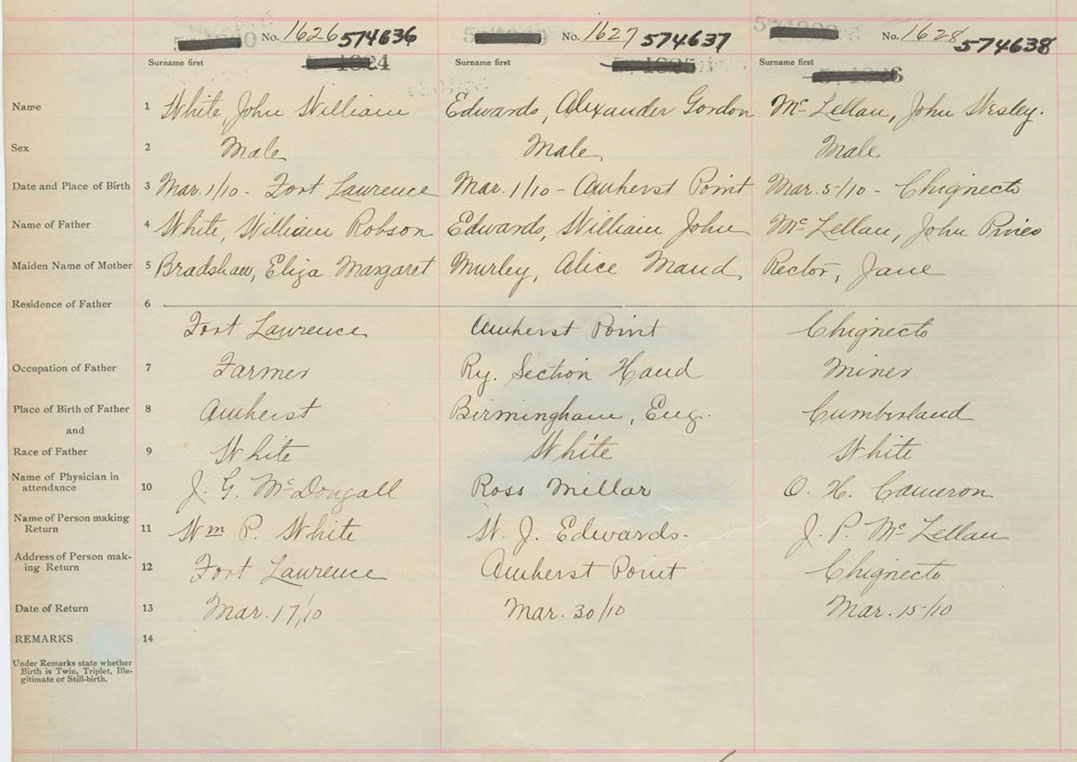 No. 1626 574636 No. 1627 574637 No. 1628 574638
Surname first Surname first Surname first
Name 1 White, John William Edwards, Alexander Gordon Mc Lellan, John Wesley.
Sex 2 Male Male Male
Date and Place of Birth 3 Mar. 1/10 - Fort Laurence Mar. 1/10 - Amherst Point Mar. 5/10 - Chignecto
Name of Father 4 White, William Robson Edwards, William John Mc Lellan, John Priveo
Maiden Name of Mother 5 Bradshaw, Eliza Margaret Murley, Alice Maud Rector, Jane
Residence of Father 6
Fort Lawrence Amherst Point Chignecto
Occupation of Father 7 Farmer Ry. Section Hand Miner
Place of Birth of Father 8 Amherst Birmingham, Eng. Cumberland
and
Race of Father 9 White White White
Name of Physician in
attendance 10 J. G. McDougall Ross Millar O. H. Cameron
Name of Person making
Return 11 Wm P. White W. J. Edwards- J. P. Mc Lellan
Address of Person mak-
ing Return 12 Fort Lawrence Amherst Point Chignecto
Date of Return 13 Mar. 17/10 Mar. 30/10 Mar. 15/10
REMARKS 14
Under Remarks state whether
Birth is Twin, Triplet, Ille-
gitimate or Still-birth.